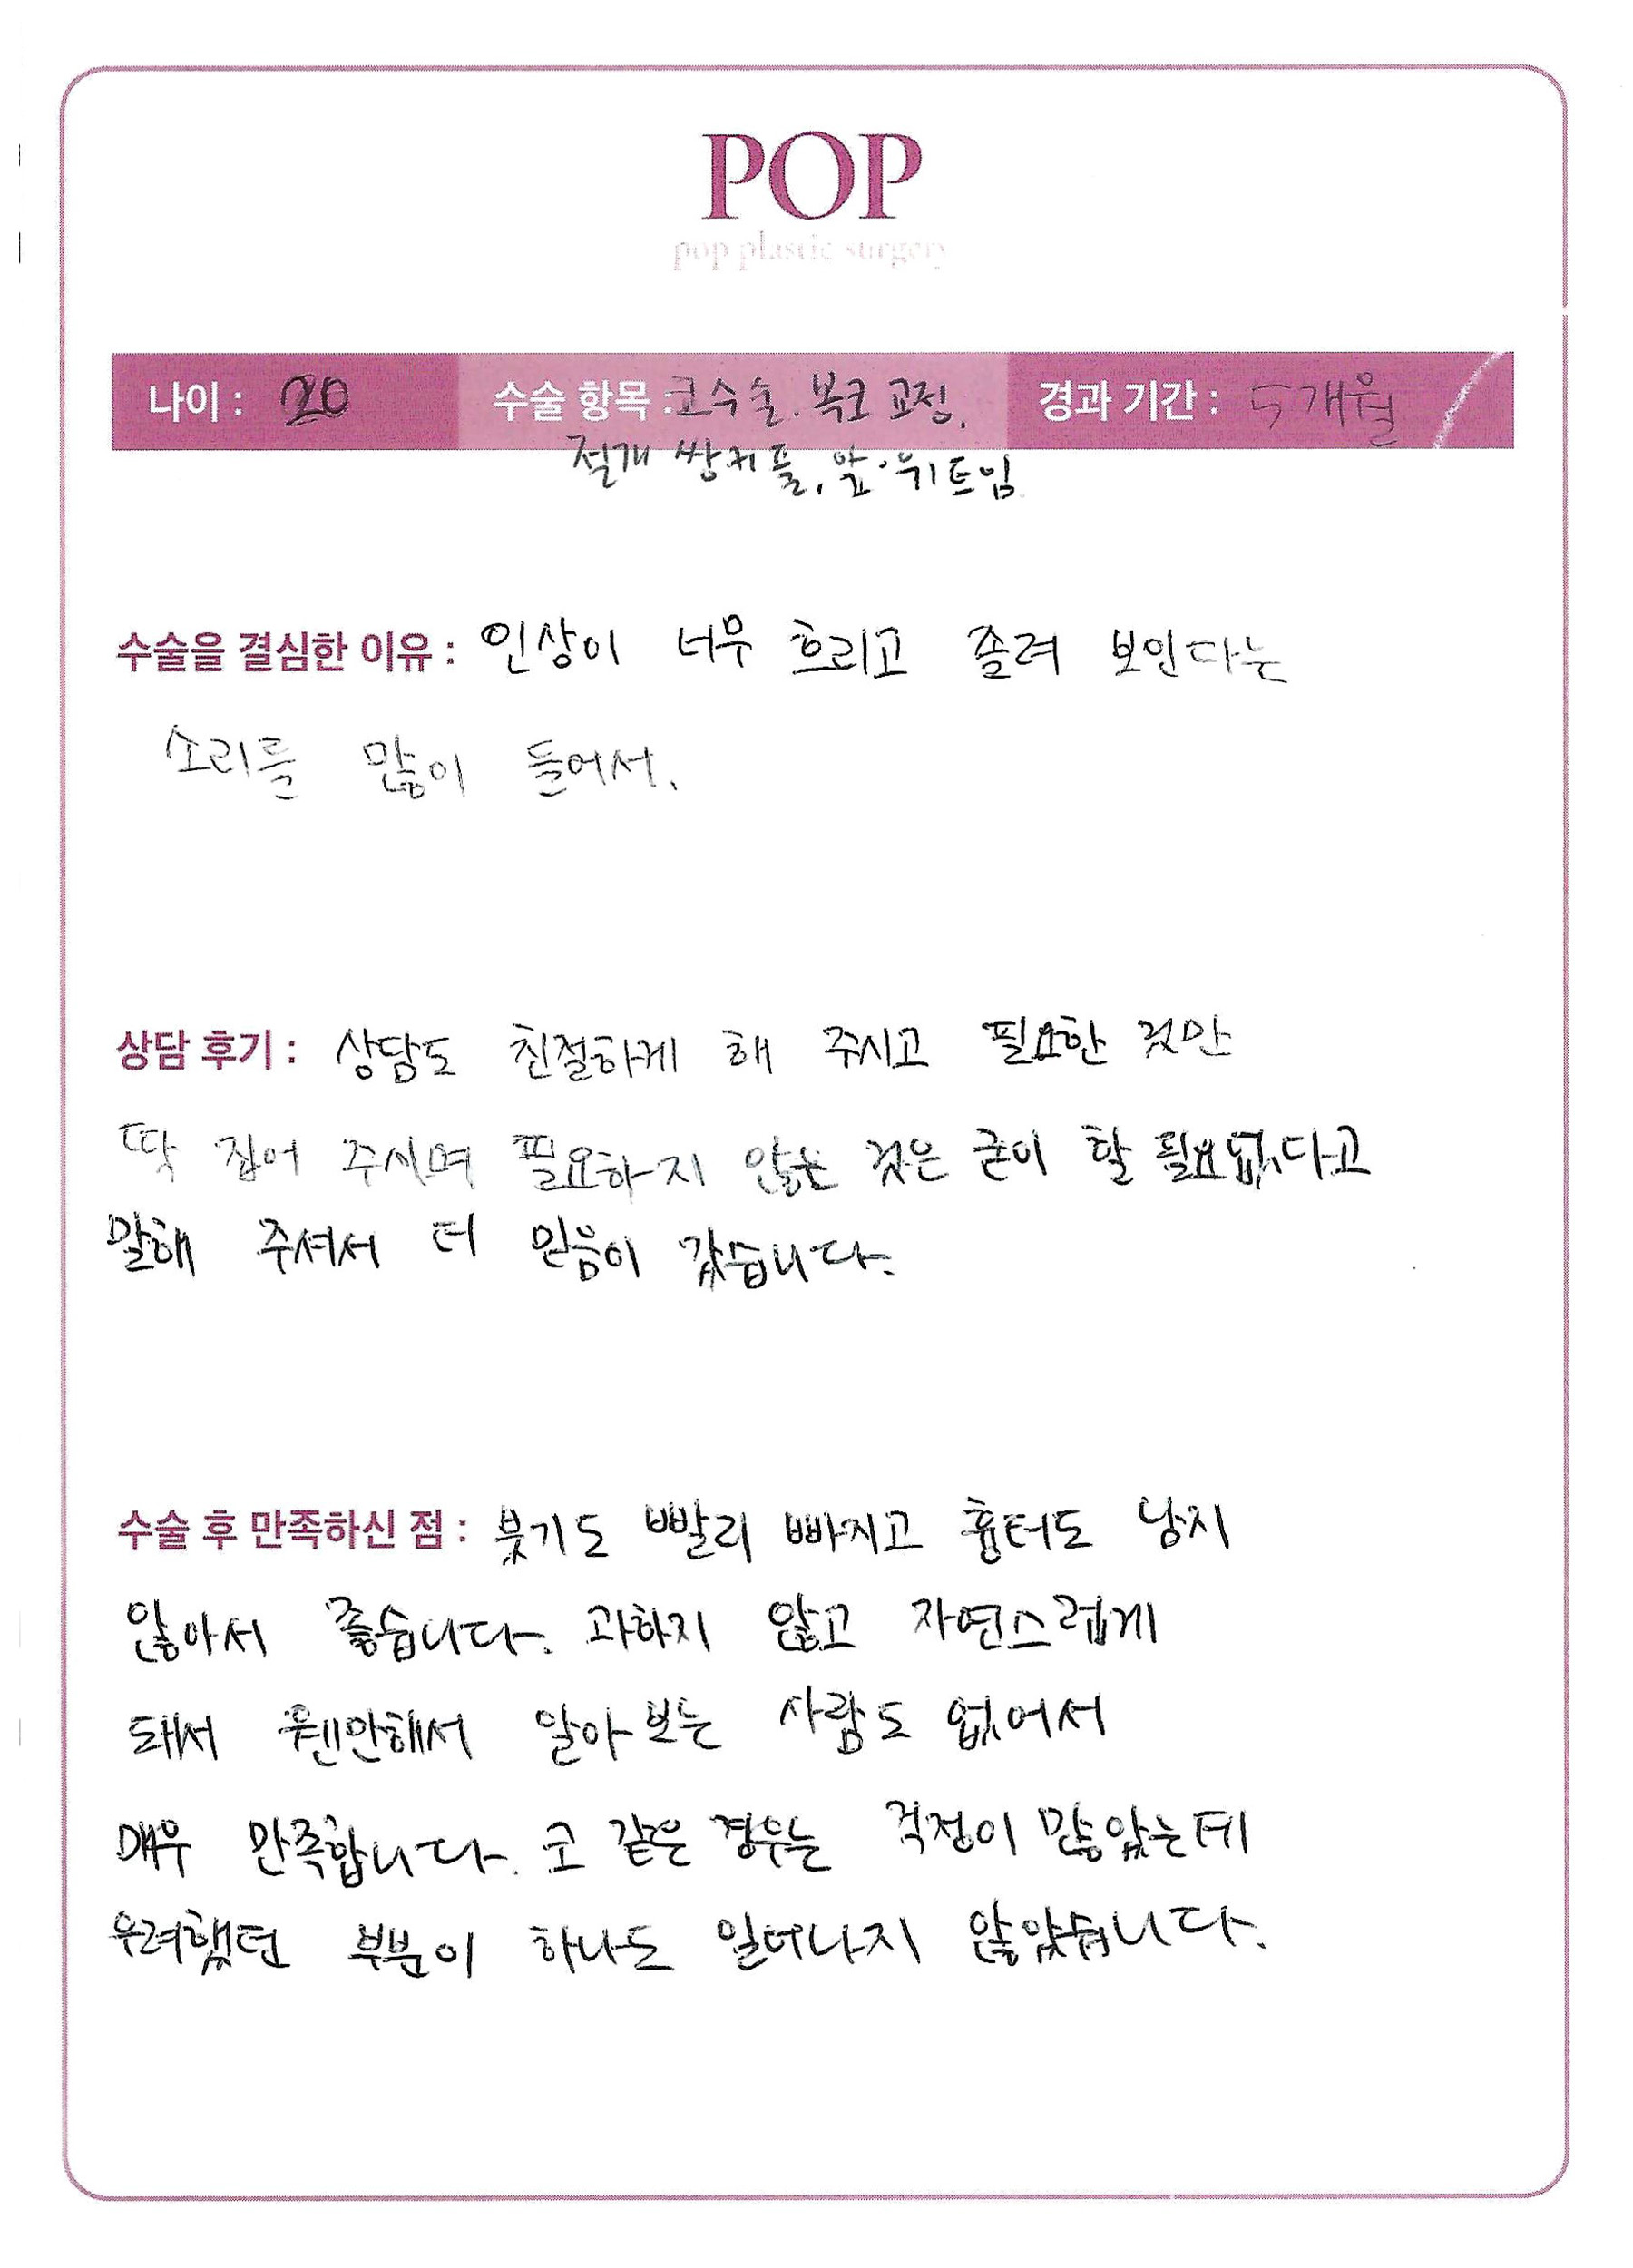 POP
pop plastic surgery
나이 : 20 수술 항목 : 코수술. 복코 교정. 경과 기간 : 5개월
절개 쌍커풀, 앞·뒤트임
수술을 결심한 이유 : 인상이 너무 흐리고 졸려 보인다는
소리를 많이 들어서.
상담 후기 : 상담도 친절하게 해 주시고 필요한 것만
딱 집어 주시며 필요하지 않은 것은 굳이 할 필요없다고
말해 주셔서 더 믿음이 갔습니다.
수술 후 만족하신 점 : 붓기도 빨리 빠지고 흉터도 남지
않아서 좋습니다. 과하지 않고 자연스럽게
돼서 웬만해서 알아보는 사람도 없어서
매우 만족합니다. 코 같은 경우는 걱정이 많았는데
우려했던 부분이 하나도 일어나지 않았습니다.